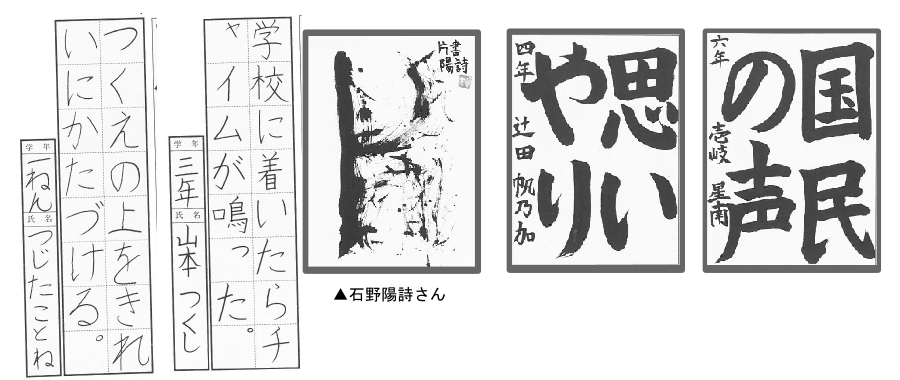 国民
の声
六年 壱岐 星南
思い
やり
四年 辻田 帆乃加
片書
陽詩
▲石野陽詩さん
学校に着いたらチ
ャイムが鳴った。
学年 三年 氏名 山本 つくし
つくえの上をきれ
いにかたづける。
学年 一ねん 氏名 つじたことね